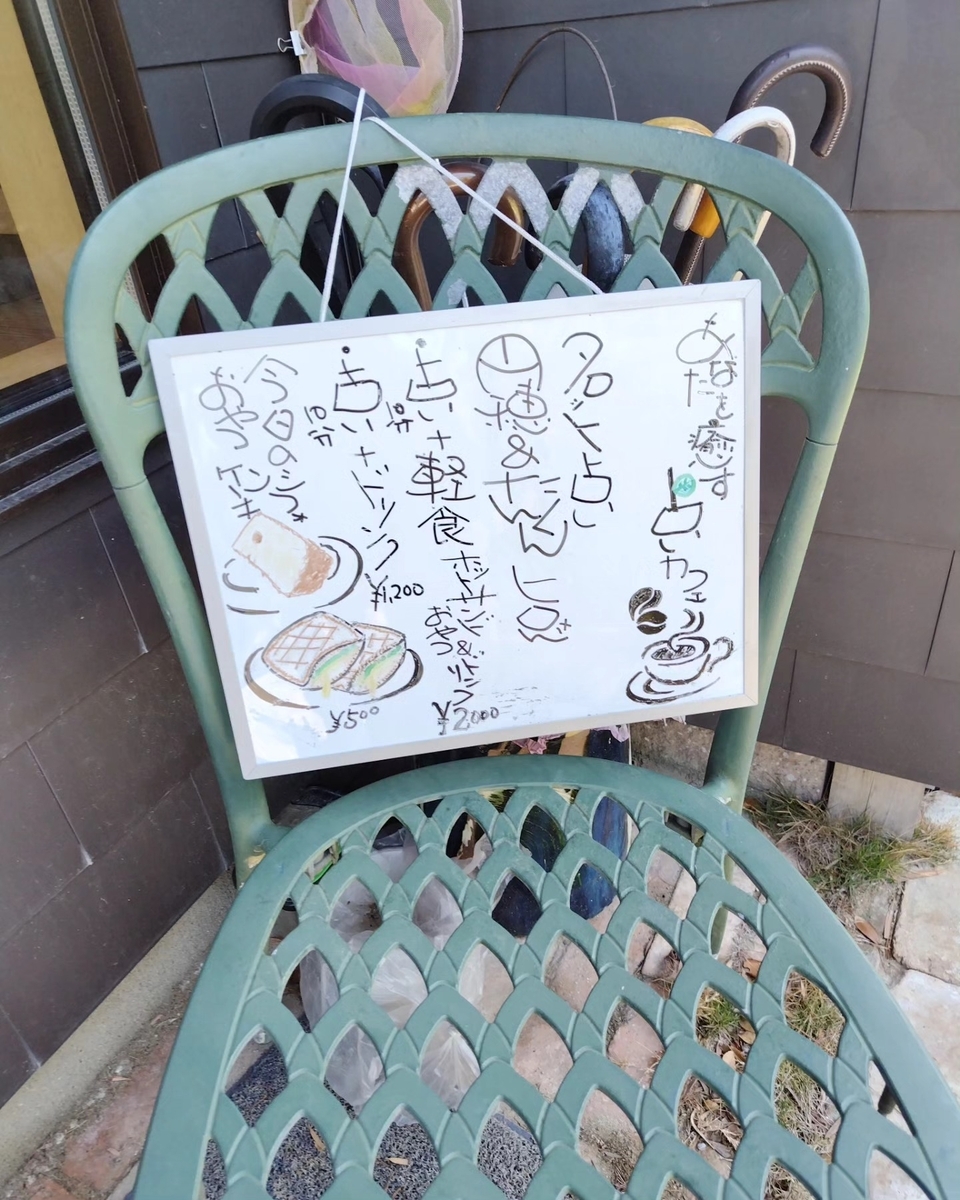 あなたを癒す
占いカフェ
タロット占い
占い+軽食 ホットサンド&ドリンク
10分
おやつ
¥2000
占い+ドリンク
10分
¥1,200
今日のシフォン
おやつ ケーキ
¥500